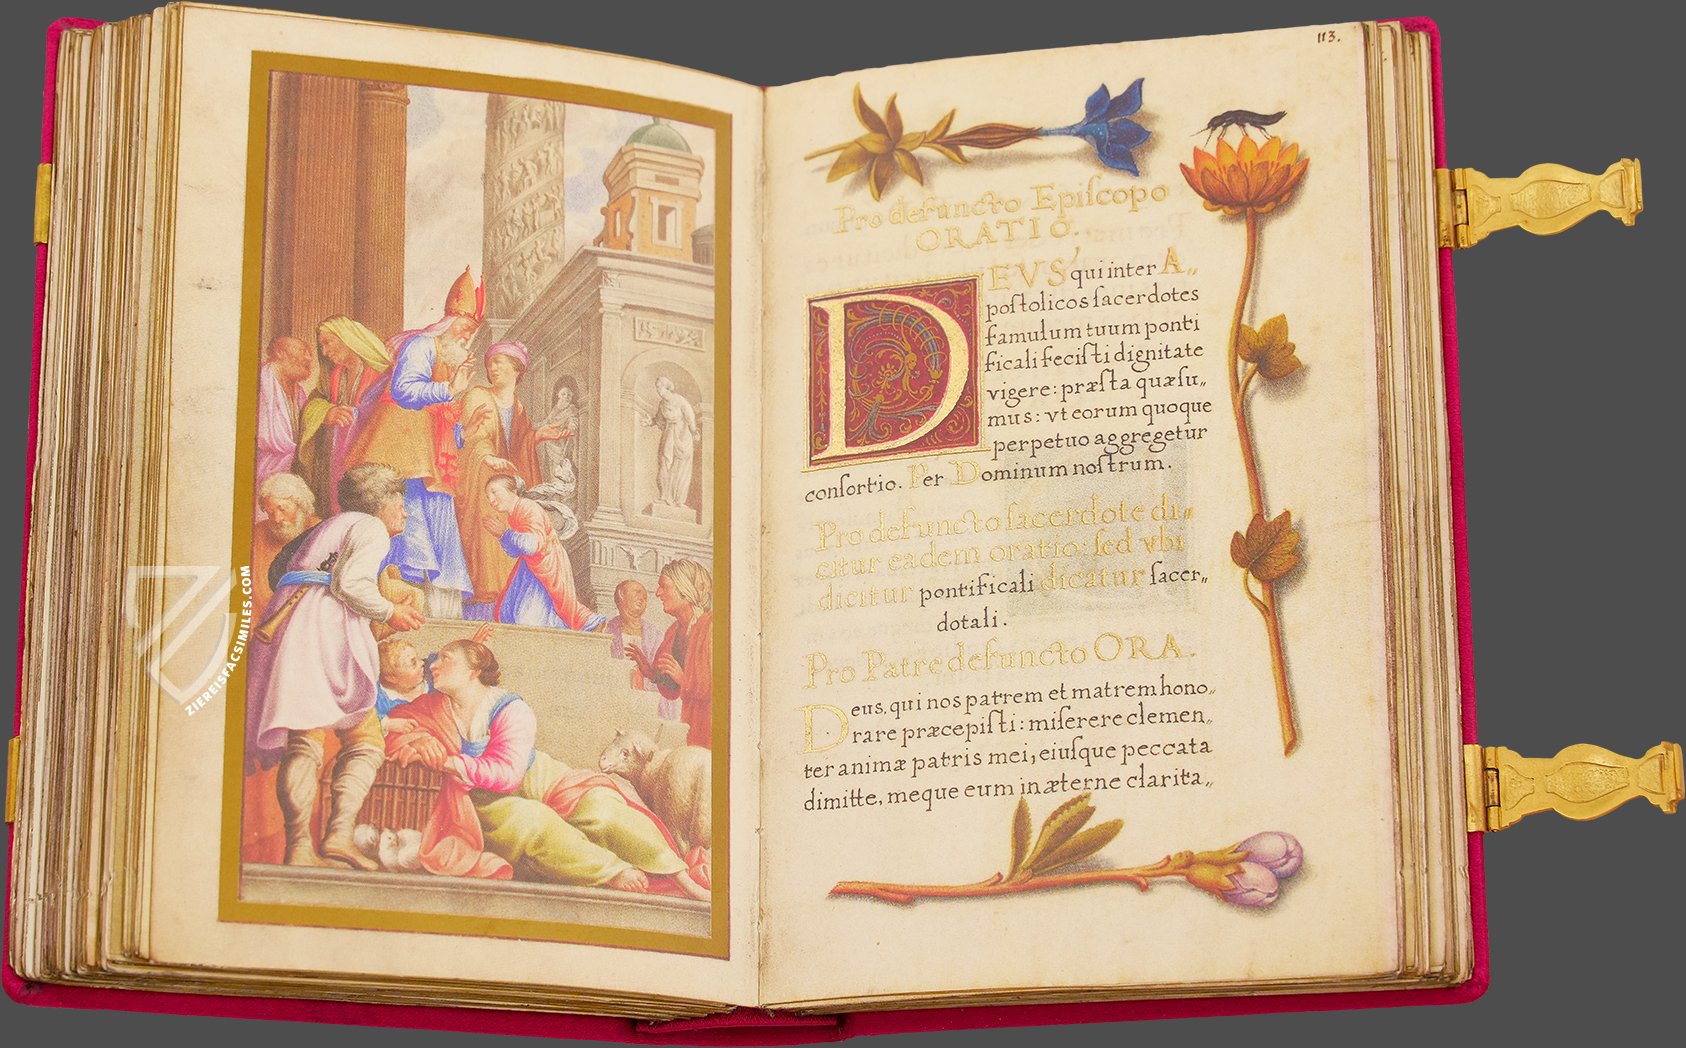 113.
Pro defuncto Epiſcopo
ORATIO.
DEVS qui inter A„
poſtolicos ſacerdotes
famulum tuum ponti
ficali feciſti dignitate
vigere: præſta quæſu„
mus: vt eorum quoque
perpetuo aggregetur
conſortio. Per Dominum noſtrum.
Pro defuncto ſacerdote di„
citur eadem oratio: ſed vbi
dicitur pontificali dicatur ſacer„
dotali.
Pro Patre defuncto ORA.
Deus, qui nos patrem et matrem hono„
rare præcepiſti: miſerere clemen„
ter animæ patris mei, eiuſque peccata
dimitte, meque eum in æterne clarita„
ZIEREISFACSIMILES.COM